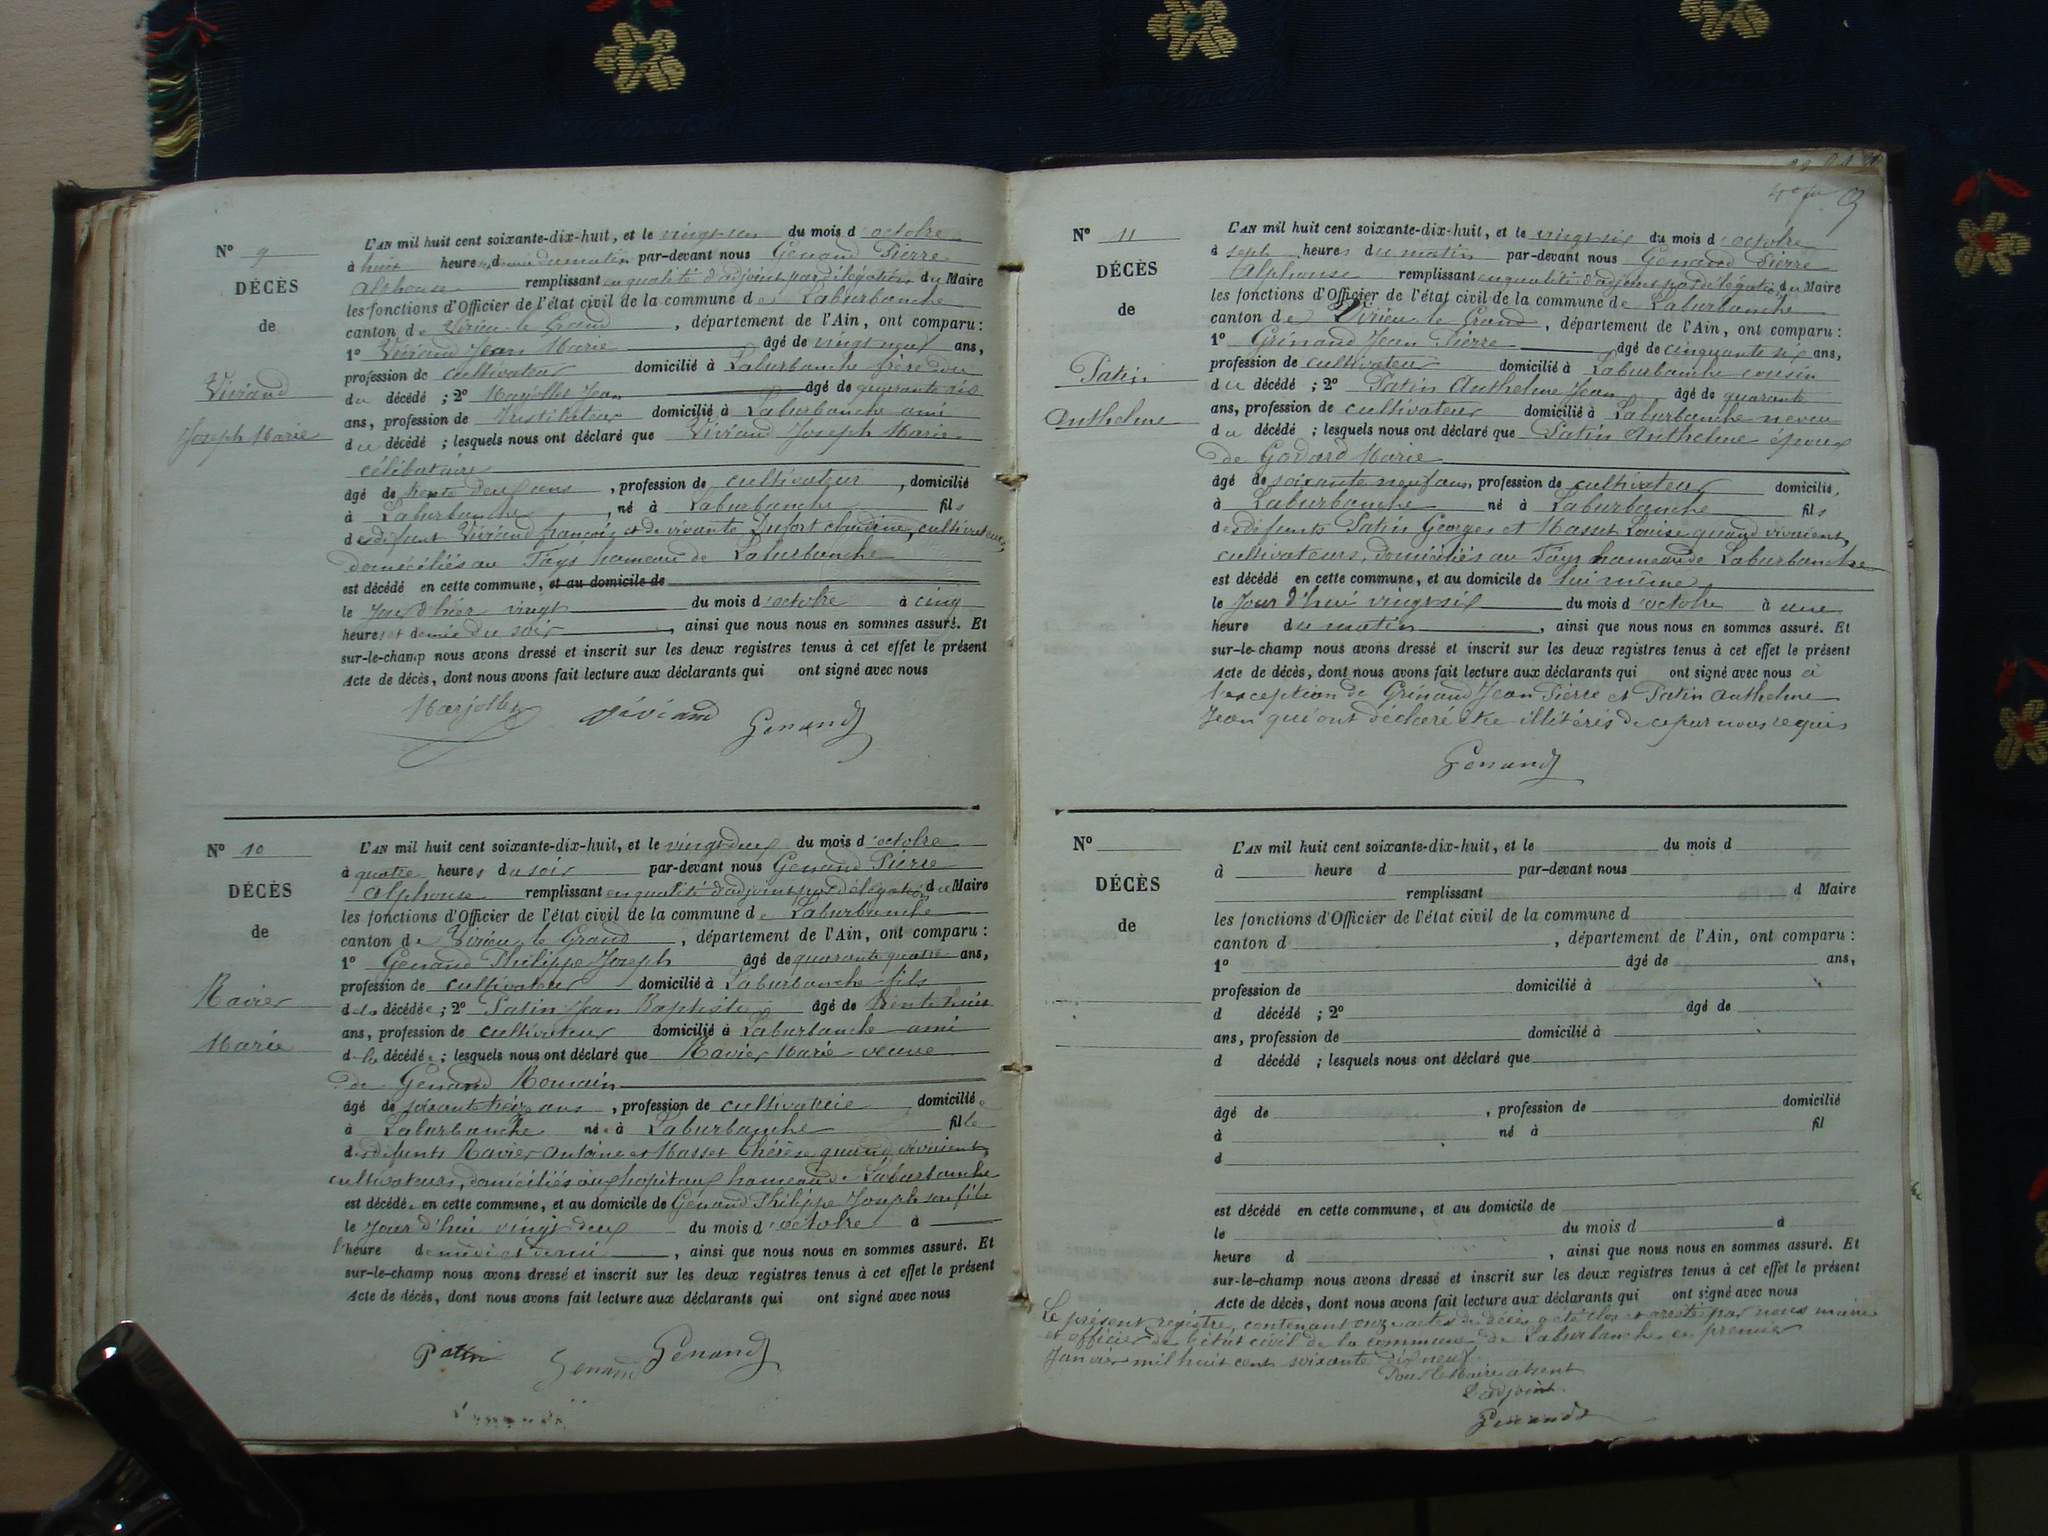 N° 9
DÉCÈS
de
Viviand
Joseph Marie
L'AN mil huit cent soixante-dix-huit, et le vingt-un du mois d'octobre
à huit heures et demie du matin par-devant nous Genand Pierre
Alphonse remplissant en qualité d'adjoint par délégation du Maire
les fonctions d'Officier de l'état civil de la commune de Laburbanche
canton de Virieu-le-Grand, département de l'Ain, ont comparu :
1° Viviand Jean Marie âgé de vingt neuf ans,
profession de cultivateur domicilié à Laburbanche frère du
du décédé ; 2° Marjollet Jean âgé de quarante six
ans, profession de Instituteur domicilié à Laburbanche ami
du décédé ; lesquels nous ont déclaré que Viviand Joseph Marie
célibataire
âgé de trente deux ans, profession de cultivateur, domicilié
à Laburbanche, né à Laburbanche fils
des défunt Viviand françois et de vivante Dufort claudine, cultivateurs,
domiciliés au Fays hameau de Laburbanche
est décédé en cette commune, et au domicile de
le jour d'hier vingt du mois d'octobre à cinq
heures et demie du soir, ainsi que nous nous en sommes assuré. Et
sur-le-champ nous avons dressé et inscrit sur les deux registres tenus à cet effet le présent
Acte de décès, dont nous avons fait lecture aux déclarants qui ont signé avec nous
Marjollet Viviand Genand
N° 10
DÉCÈS
de
Ravier
Marie
L'AN mil huit cent soixante-dix-huit, et le vingt deux du mois d'octobre
à quatre heures du soir par-devant nous Genand Pierre
Alphonse remplissant en qualité d'adjoint par délégation du Maire
les fonctions d'Officier de l'état civil de la commune de Laburbanche
canton de Virieu-le-Grand, département de l'Ain, ont comparu :
1° Genand Philippe Joseph âgé de quarante quatre ans,
profession de cultivateur domicilié à Laburbanche fils
de la décédée ; 2° Patin Jean Baptiste âgé de trente huit
ans, profession de cultivateur domicilié à Laburbanche ami
de la décédée ; lesquels nous ont déclaré que Ravier Marie veuve
de Genand Romain
âgé de soixante treize ans, profession de cultivatrice domiciliée
à Laburbanche née à Laburbanche fille
des défunts Ravier Antoine et Masset thérèse quand vivaient,
cultivateurs, domiciliés aux hopitaux hameau de Laburbanche
est décédée en cette commune, et au domicile de Genand Philippe Joseph son fils
le jour d'hui vingt deux du mois d'octobre à
l'heure de midi et demi, ainsi que nous nous en sommes assuré. Et
sur-le-champ nous avons dressé et inscrit sur les deux registres tenus à cet effet le présent
Acte de décès, dont nous avons fait lecture aux déclarants qui ont signé avec nous
Patin Genand Genand
N° 11
DÉCÈS
de
Patin
Anthelme
L'AN mil huit cent soixante-dix-huit, et le vingt six du mois d'octobre
à sept heures du matin par-devant nous Genand Pierre
Alphonse remplissant en qualité d'adjoint par délégation du Maire
les fonctions d'Officier de l'état civil de la commune de Laburbanche
canton de Virieu-le-Grand, département de l'Ain, ont comparu :
1° Grinand Jean Pierre âgé de cinquante six ans,
profession de cultivateur domicilié à Laburbanche cousin
du décédé ; 2° Patin Anthelme Jean âgé de quarante
ans, profession de cultivateur domicilié à Laburbanche neveu
du décédé ; lesquels nous ont déclaré que Patin Anthelme époux
de Godard Marie
âgé de soixante neuf ans, profession de cultivateur domicilié,
à Laburbanche né à Laburbanche fils
des défunts Patin Georges et Masset Louise quand vivaient,
cultivateurs, domiciliés au Fays hameau de Laburbanche
est décédé en cette commune, et au domicile de lui même
le jour d'hui vingt six du mois d'octobre à une
heure du matin, ainsi que nous nous en sommes assuré. Et
sur-le-champ nous avons dressé et inscrit sur les deux registres tenus à cet effet le présent
Acte de décès, dont nous avons fait lecture aux déclarants qui ont signé avec nous à
l'exception de Grinand Jean Pierre et Patin Anthelme
Jean qui ont déclaré être illitérés de ce par nous requis
Genand
N°
DÉCÈS
de
L'AN mil huit cent soixante-dix-huit, et le du mois d
à heure d par-devant nous
remplissant d Maire
les fonctions d'Officier de l'état civil de la commune d
canton d , département de l'Ain, ont comparu :
1° âgé de ans,
profession de domicilié à
d décédé ; 2° âgé de
ans, profession de domicilié à
d décédé ; lesquels nous ont déclaré que
âgé de , profession de domicilié
à né à fil
d
est décédé en cette commune, et au domicile de
le du mois d à
heure d , ainsi que nous nous en sommes assuré. Et
sur-le-champ nous avons dressé et inscrit sur les deux registres tenus à cet effet le présent
Acte de décès, dont nous avons fait lecture aux déclarants qui ont signé avec nous
Le présent registre, contenant onze actes de décès a été clos et arrêté par nous maire
et officier de l'état civil de la commune de Laburbanche ce premier
Janvier mil huit cent soixante dix neuf.
Pour le Maire absent
L'adjoint
Genand